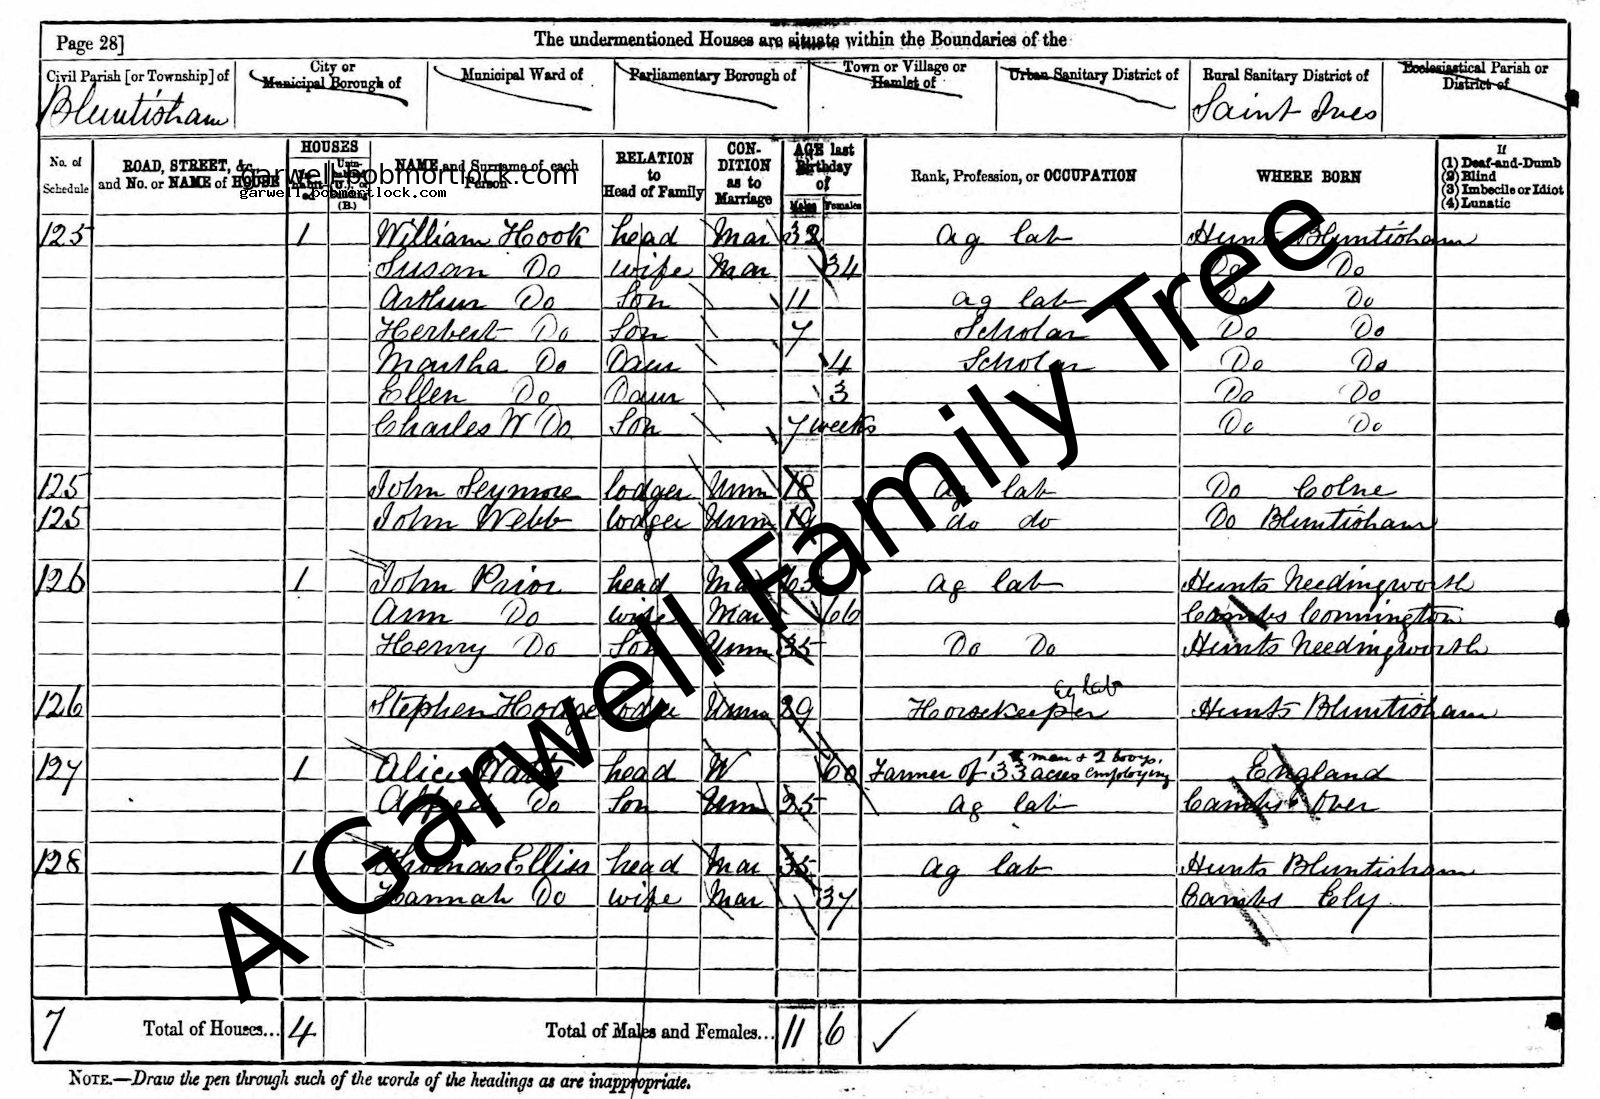 Page 28]
The undermentioned Houses are situate within the Boundaries of the
Civil Parish [or Township] of
City or Municipal Borough of
Municipal Ward of
Parliamentary Borough of
Town or Village or Hamlet of
Urban Sanitary District of
Rural Sanitary District of
Ecclesiastical Parish or District of
Bluntisham
Saint Ives
No. of Schedule
ROAD, STREET, &c. and No. or NAME of HOUSE
HOUSES
NAME and Surname of each Person
RELATION to Head of Family
CONDITION as to Marriage
AGE last Birthday of
Males
Females
Rank, Profession, or OCCUPATION
WHERE BORN
If
(1) Deaf-and-Dumb
(2) Blind
(3) Imbecile or Idiot
(4) Lunatic
garwell.bobmortlock.com
garwell.bobmortlock.com
125 1 William Hook head Mar Ag lab Hunts Bluntisham
Susan Do wife Mar 34 Do Do
Arthur Do Son 11 Ag lab Do Do
Herbert Do Son 7 Scholar Do Do
Martha Do Daur 4 Scholar Do Do
Ellen Do Daur 3 Do Do
Charles W Do Son 7 weeks Do Do
125 John Seymore lodger Unm 18 Ag lab Do Colne
125 John Webb lodger Unm 19 do do Do Bluntisham
126 1 John Prior head Mar 65 Ag lab Hunts Needingworth
Ann Do wife Mar 66 Cambs Connington
Henry Do Son Unm 35 Do Do Hunts Needingworth
126 Stephen Hodge lodger Unm 29 Horsekeeper Ag lab Hunts Bluntisham
127 1 Alice Watts head W 60 Farmer of 33 acres employing 1 man & 2 boys. England
Alfred Do Son Unm 25 Ag lab Cambs Over
128 1 Thomas Elliss head Mar 35 Ag lab Hunts Bluntisham
Hannah Do wife Mar 37 Cambs Ely
7 Total of Houses... 4 Total of Males and Females... 11 6
NOTE.—Draw the pen through such of the words of the headings as are inappropriate.
A Garwell Family Tree